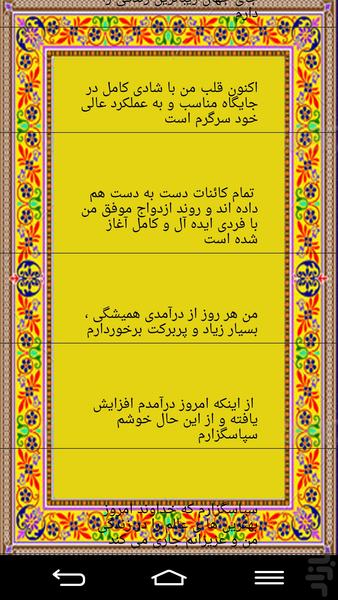 دارم
اکنون قلب من با شادی کامل در
جایگاه مناسب و به عملکرد عالی
خود سرگرم است
تمام کائنات دست به دست هم
داده اند و روند ازدواج موفق من
با فردی ایده آل و کامل آغاز
شده است
من هر روز از درآمدی همیشگی ،
بسیار زیاد و پربرکت برخوردارم
از اینکه امروز درآمدم افزایش
یافته و از این حال خوشم
سپاسگزارم
سپاسگزارم که خداوند امروز
بهترین های عالم را در زندگی
من و عزیزانم جاری می کند